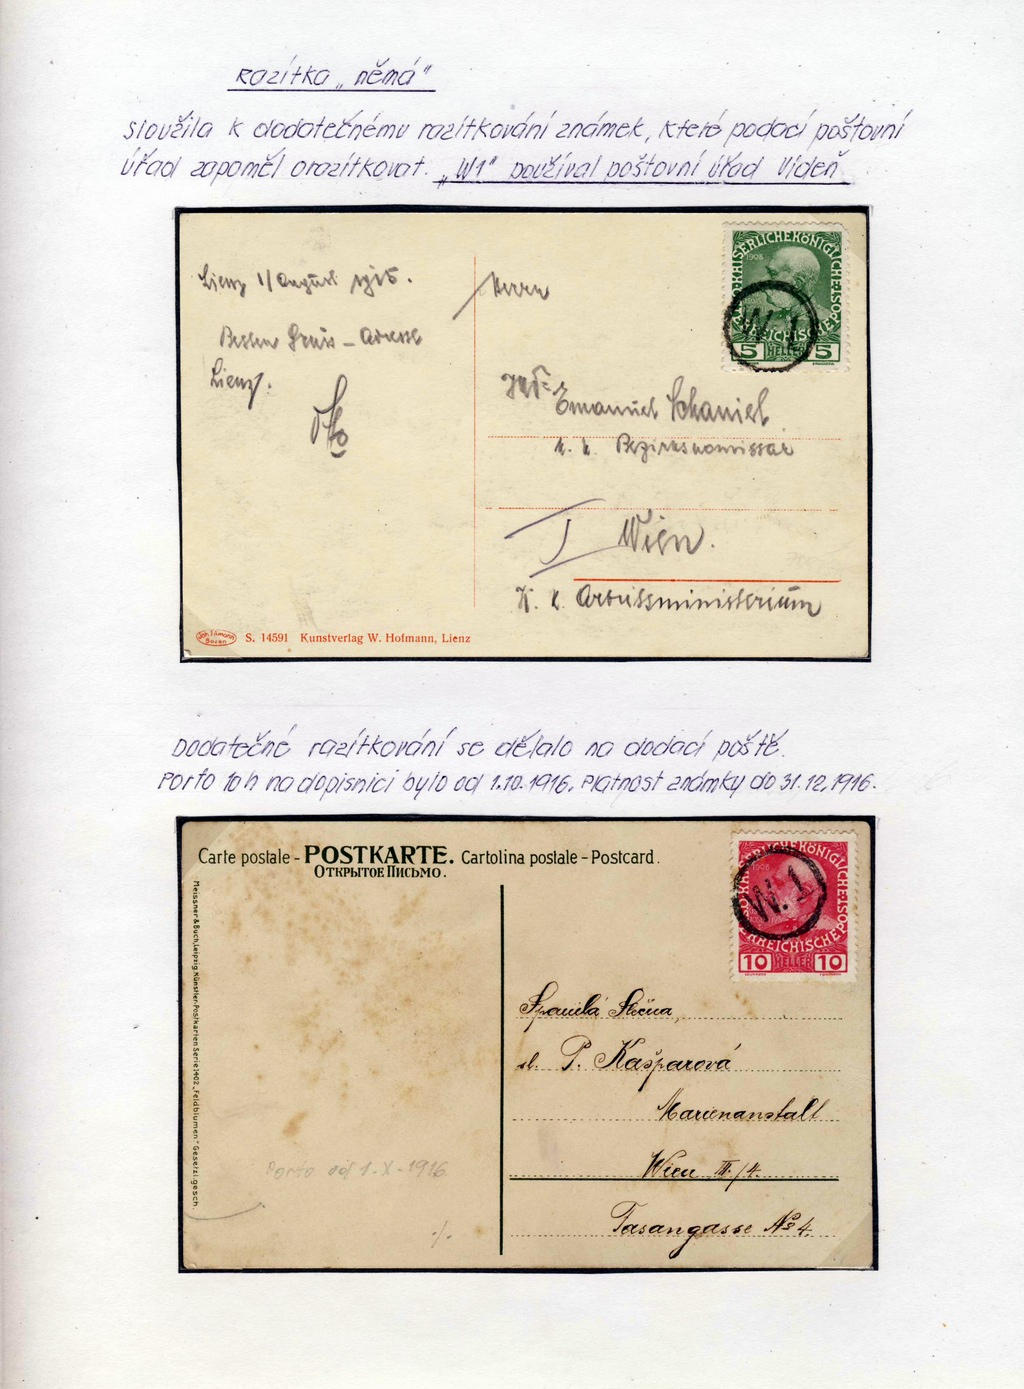 Razítka „němá"
sloužila k dodatečnému razítkování známek, které podací poštovní
úřad zapoměl orazítkovat. „W1" používal poštovní úřad Vídeň
KAISERLICHEKÖNIGLICHE
1908
W. 1
5 HELLER 5
Lienz 1/August 1915.
Besten Gruss – Adresse
Lienz.
Herrn
Emanuel Schaniel
k. k. Bezirkskommissär
I Wien.
K. k. Arbeitsministerium
S. 14591 Kunstverlag W. Hofmann, Lienz
Dodatečné razítkování se dělalo na dodací poště.
Porto 10 h na dopisnici bylo od 1.10.1916. Platnost známky do 31.12.1916.
Carte postale - POSTKARTE. Cartolina postale - Postcard.
Открытое Письмо.
1908
W. 1
10 HELLER 10
Meissner & Buch, Leipzig. Künstler-Postkarten Serie 1402. „Feldblumen" Gesetzl. gesch.
Spanilá Slečna,
sl. P. Kašparová
Marienanstalt
Wien III./4.
Fasangasse № 4.
Porto od 1-X-1916